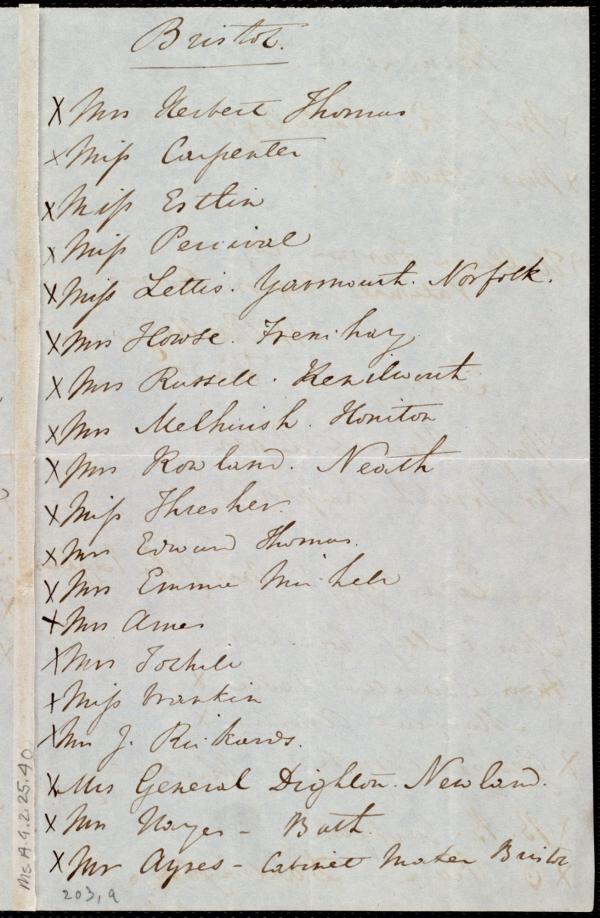 Bristol.
X Mrs Herbert Thomas
X Miss Carpenter
X Miss Estlin
X Miss Percival
X Miss Lettis. Yarmouth. Norfolk.
X Mrs Howse. Frenchay.
X Mrs Russell. Kenilworth
X Mrs Melhuish. Honiton
X Mrs Rowland. Neath
X Miss Thresher.
X Mrs Edward Thomas.
X Mrs Emma Michell
X Mrs Ames
X Mrs
X Miss Rankin
X Mrs J. Rickards.
X Mrs General Dighton. Newland.
X Mrs Noyes - Bath.
X Mr Ayres - Cabinet Maker Bristol
Ms A.9.2.25.40
203, a